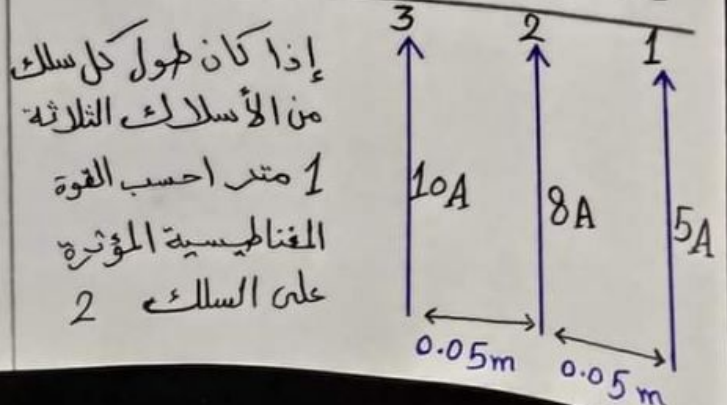 إذا كان طول كل سلك
من الأسلاك الثلاثة
1 متر احسب القوة
المغناطيسية المؤثرة
على السلك 2
3 2 1
10A 8A 5A
0.05m 0.05m